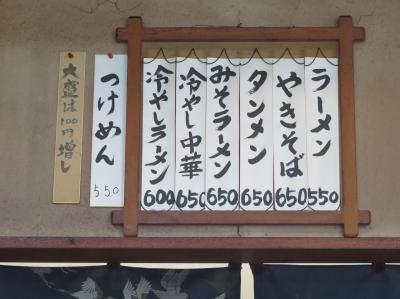 ラーメン 550
やきそば 650
タンメン 650
みそラーメン 650
冷やし中華 650
冷やしラーメン 600
つけめん 550
大盛は100円増し